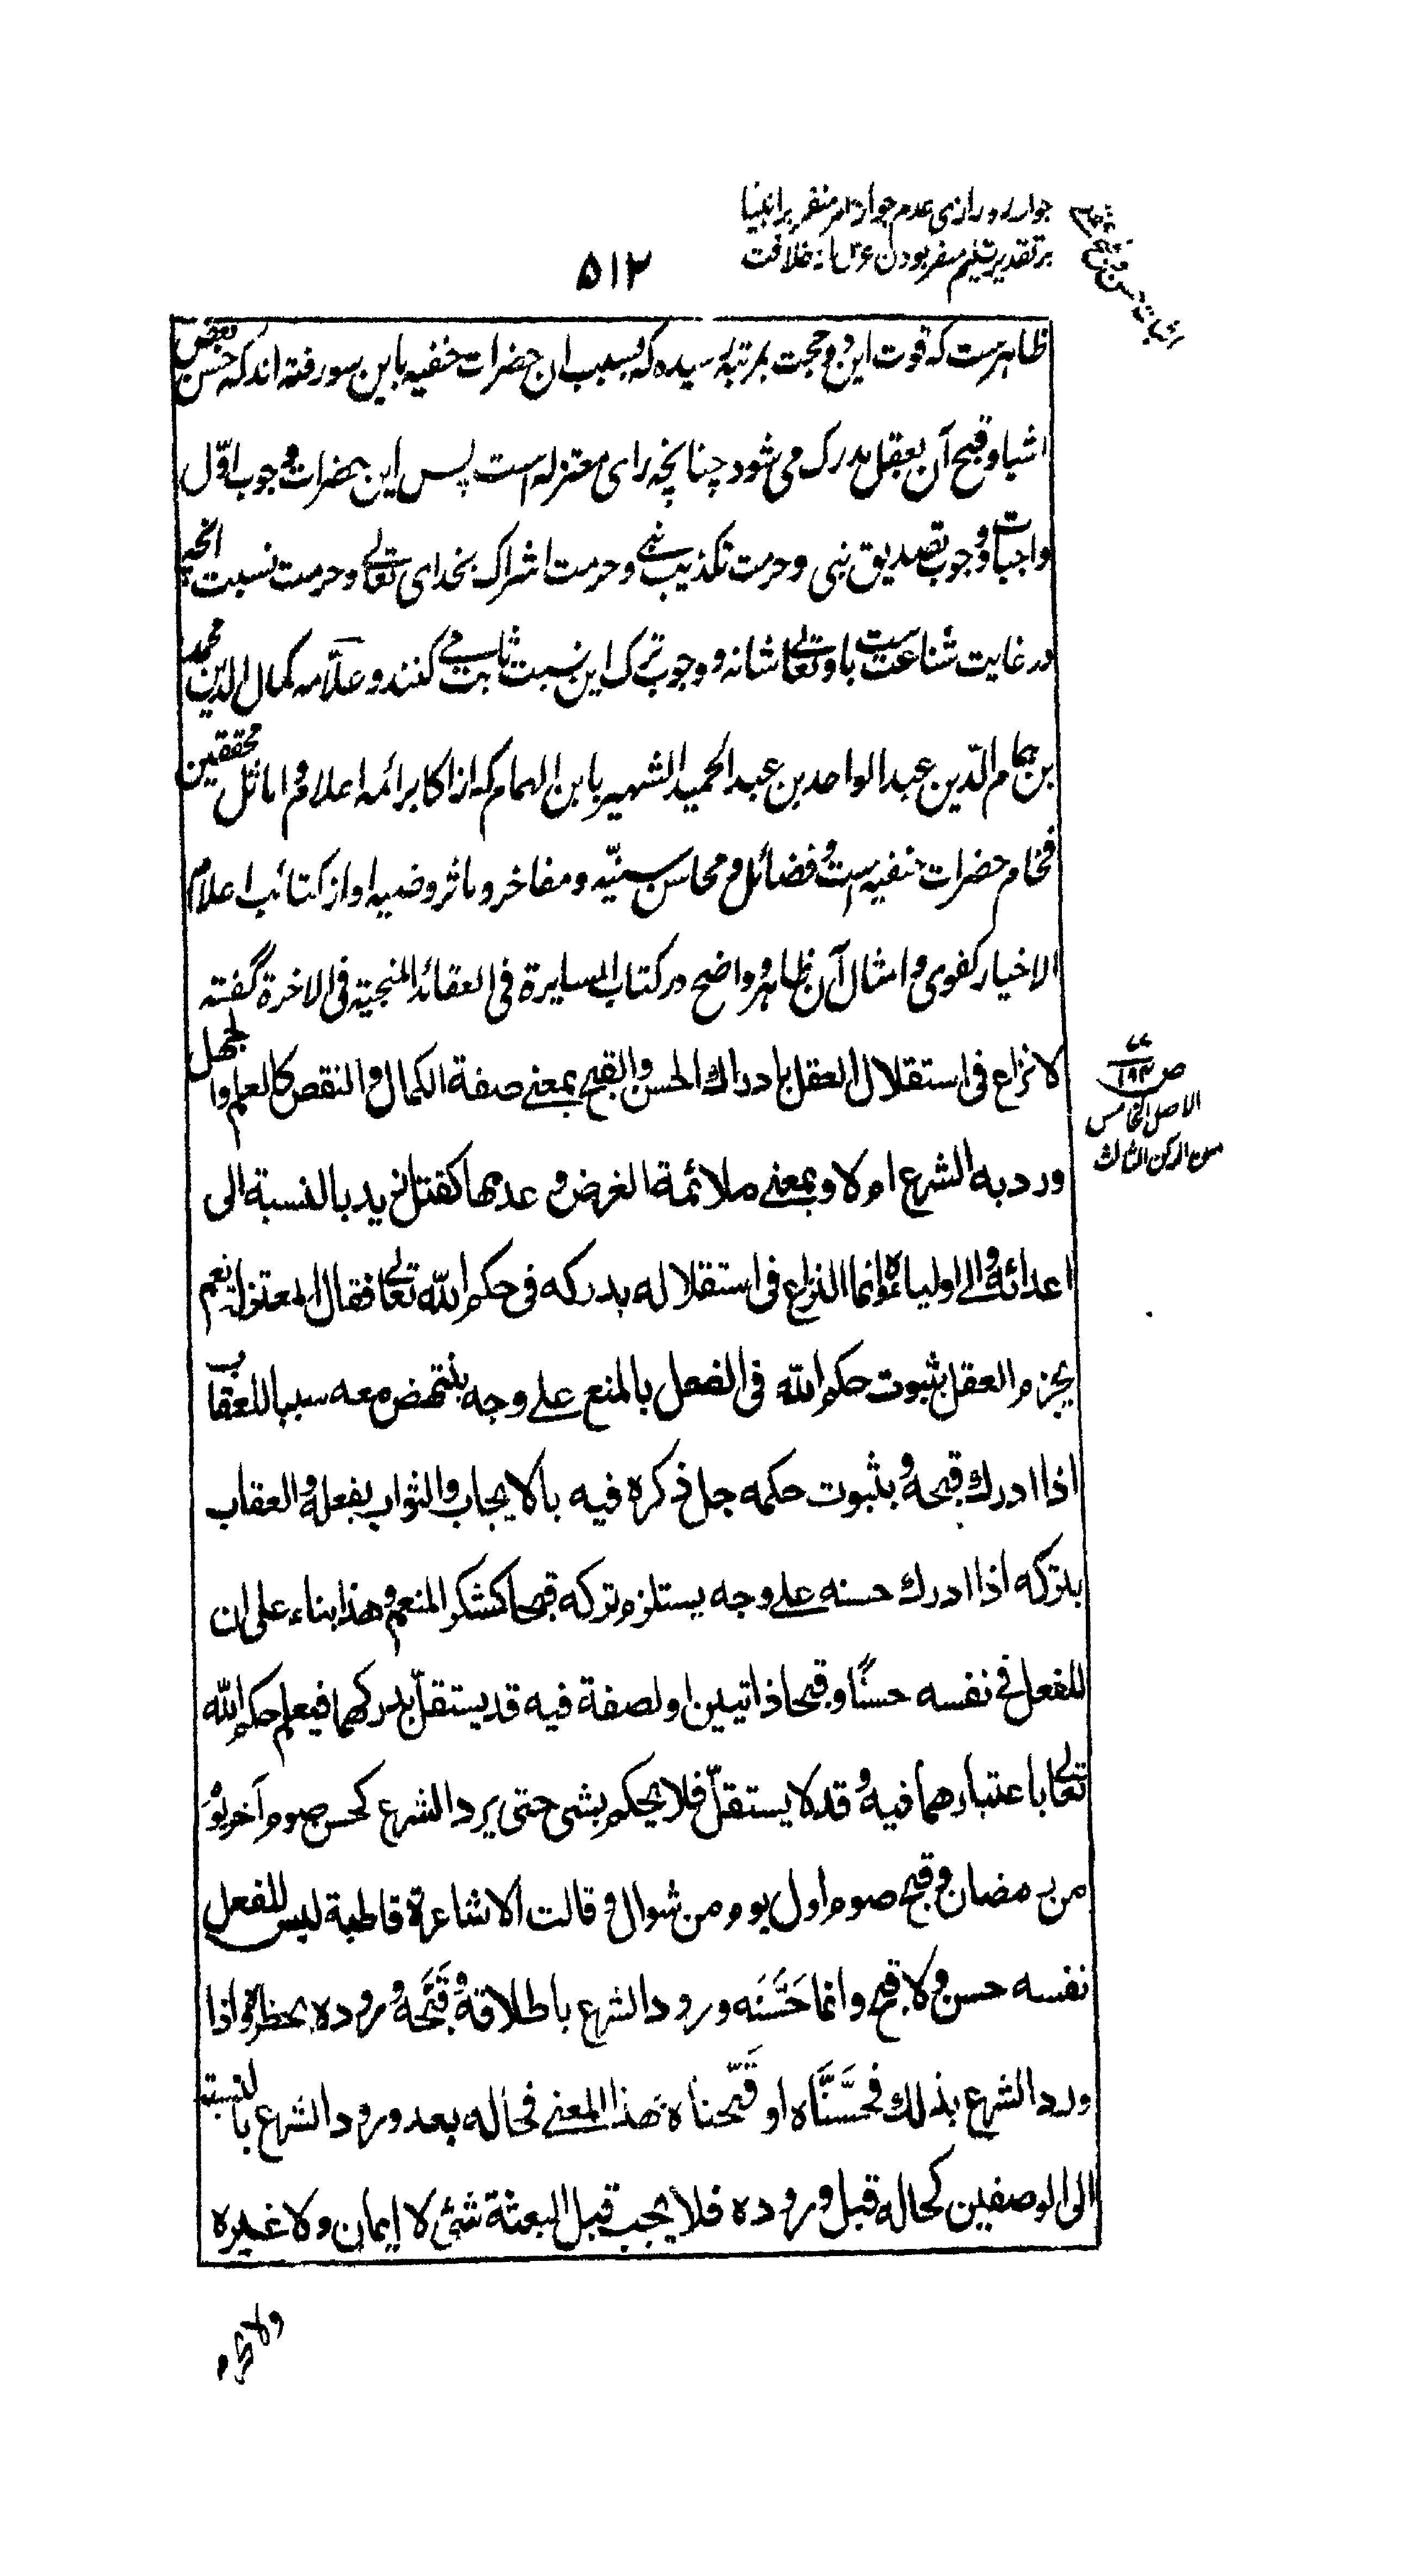 ۵۱۲
بر تقدیر تسلیم منفر بودن خلافت
ظاهرست که قوت این دو حجت بمرتبهٔ رسیده که بسبب ان حضرات حنفیه باین سو رفته اند که حسن بعض
اشیا و قبح آن بعقل مدرک می شود چنانچه رای معتزله است پس این حضرات وجوب اوّل
واجبات و وجوب تصدیق نبی و حرمت تکذیب نبی و حرمت اشراک بخدای تعالی و حرمت نسبت انچه
در غایت شناعت ست باو تعالی شانه و وجوب ترک این نسبت ثابت می کنند و علّامه کمال الدین محمد
بن همام الدّین عبد الواحد بن عبد الحمید الشهیر بابن الهمام که از اکابر ائمه اعلام و اماثل محققین
فخام حضرات حنفیه است و فضائل و محاسن سنیّه و مفاخر و ماثر وضیه او از کتائب اعلام
الاخیار کفوی و امثال آن ظاهر و واضح در کتاب المسایرة فی العقائد المنجیة فی الاخرة گفته
لا نزاع فی استقلال العقل بادراك الحسن والقبح بمعنی صفة الکمال و النقص کالعلم والجهل
ورد به الشرع ام لا و بمعنی ملائمة الغرض و عدمها کقتل زید بالنسبة الی
اعدائه و الی اولیائه و انما النزاع فی استقلاله بدرکه فی حکم الله تعالی فقال المعتزلة نعم
یجزم العقل بثبوت حکم الله فی الفعل بالمنع علی وجه ینتهض معه سببا للعقاب
اذا ادرك قبحه و بثبوت حکمه جل ذکره فیه بالایجاب والثواب بفعله والعقاب
بترکه اذا ادرك حسنه علی وجه یستلزم ترکه قبحا کشکر المنعم و هذا بناء علی ان
للفعل فی نفسه حسنًا و قبحا ذاتیین او لصفة فیه قد یستقلّ بدرکهما فیعلم حکم الله
تعالی باعتبارهما فیه و قد لا یستقلّ فلا یحکم بشی حتی یرد الشرع کحسن صوم آخر یوم
من رمضان و قبح صوم اول یوم من شوال و قالت الاشاعرة قاطبة لیس للفعل
نفسه حسن و لا قبح و انما حَسَّنَه ورود الشرع باطلاقه و قَبَّحَه وروده بحظره و اذا
ورد الشرع بذلك فحسَّنَّاه او قَبَّحناه بهذا المعنی فحاله بعد ورود الشرع بالنسبة
الی الوصفین کحاله قبل وروده فلا یجب قبل البعثة شئ لا ایمان و لا غیره
الاصل الخامس
من الرکن الثالث